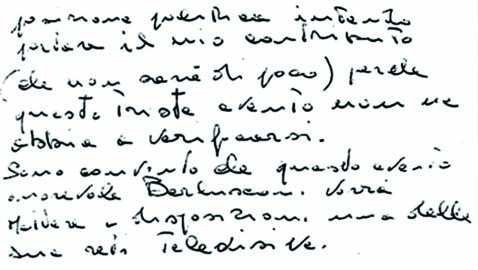 posizione politica intendo
portare il mio contributo
(che non sarà di poco) perché
questo triste evento non ne
abbia a verificarsi.
Sono convinto che questo evento
onorevole Berlusconi vorrà
mettere a disposizioni una delle
sue reti televisive.